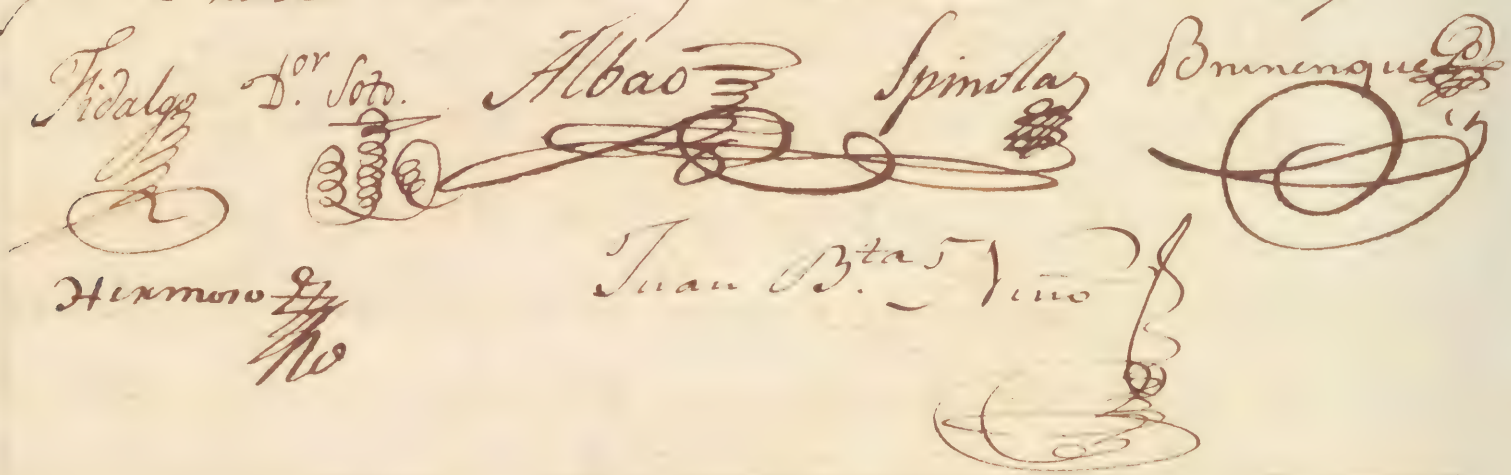 Fidalgo D.or Soto. Albao Spinola Brunenque
Hermoso Juan B.ta